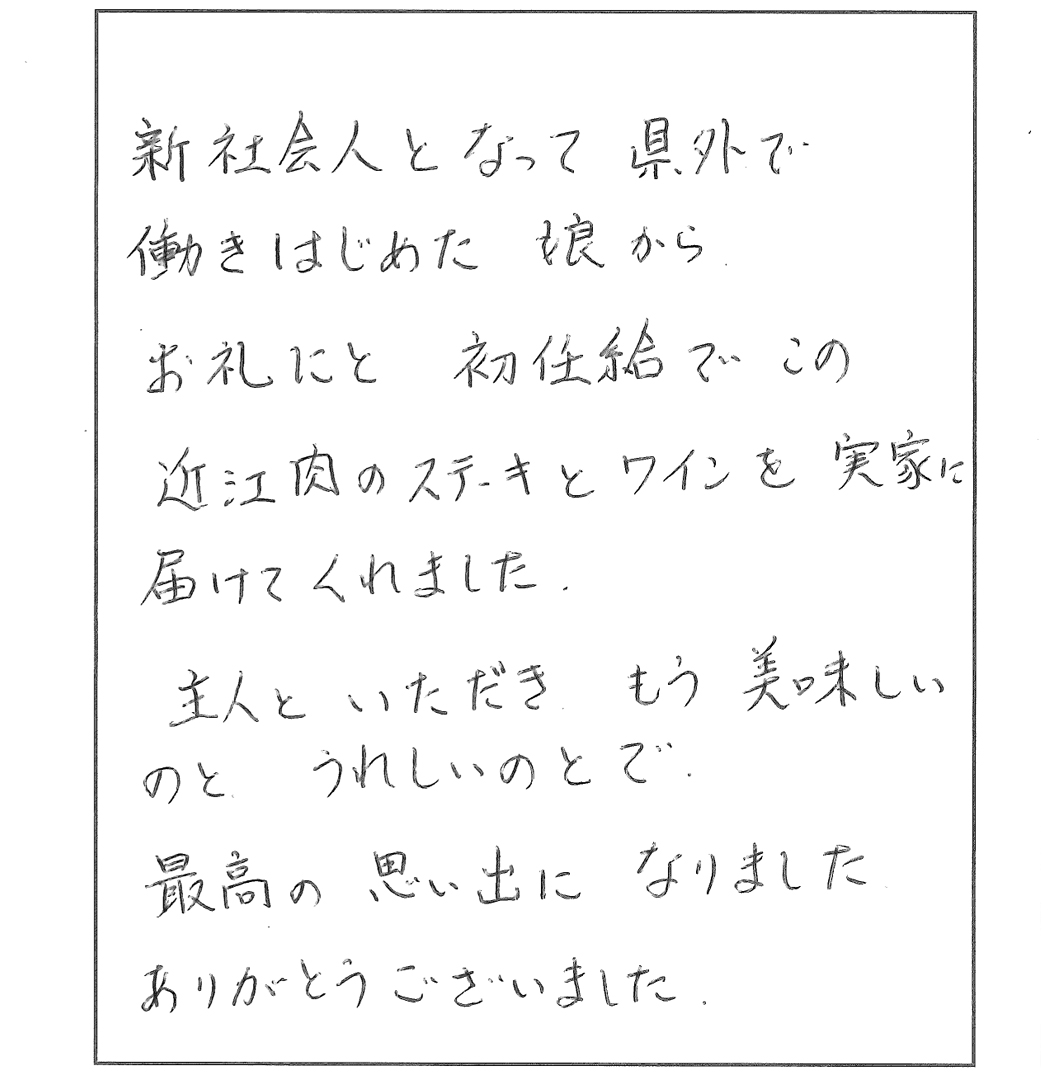 新社会人となって 県外で
働きはじめた 娘から
お礼にと 初任給で この
近江肉のステーキと ワインを 実家に
届けてくれました.
主人と いただき もう 美味しい
のと うれしいのとで.
最高の 思い出に なりました
ありがとうございました.